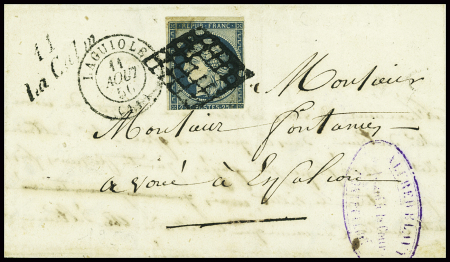 11
La Calm
LAGUIOLE
11
AOUT
50
(11)
REPUB. FRANC.
Monsieur
Monsieur Fontanier
avoué à Espalion